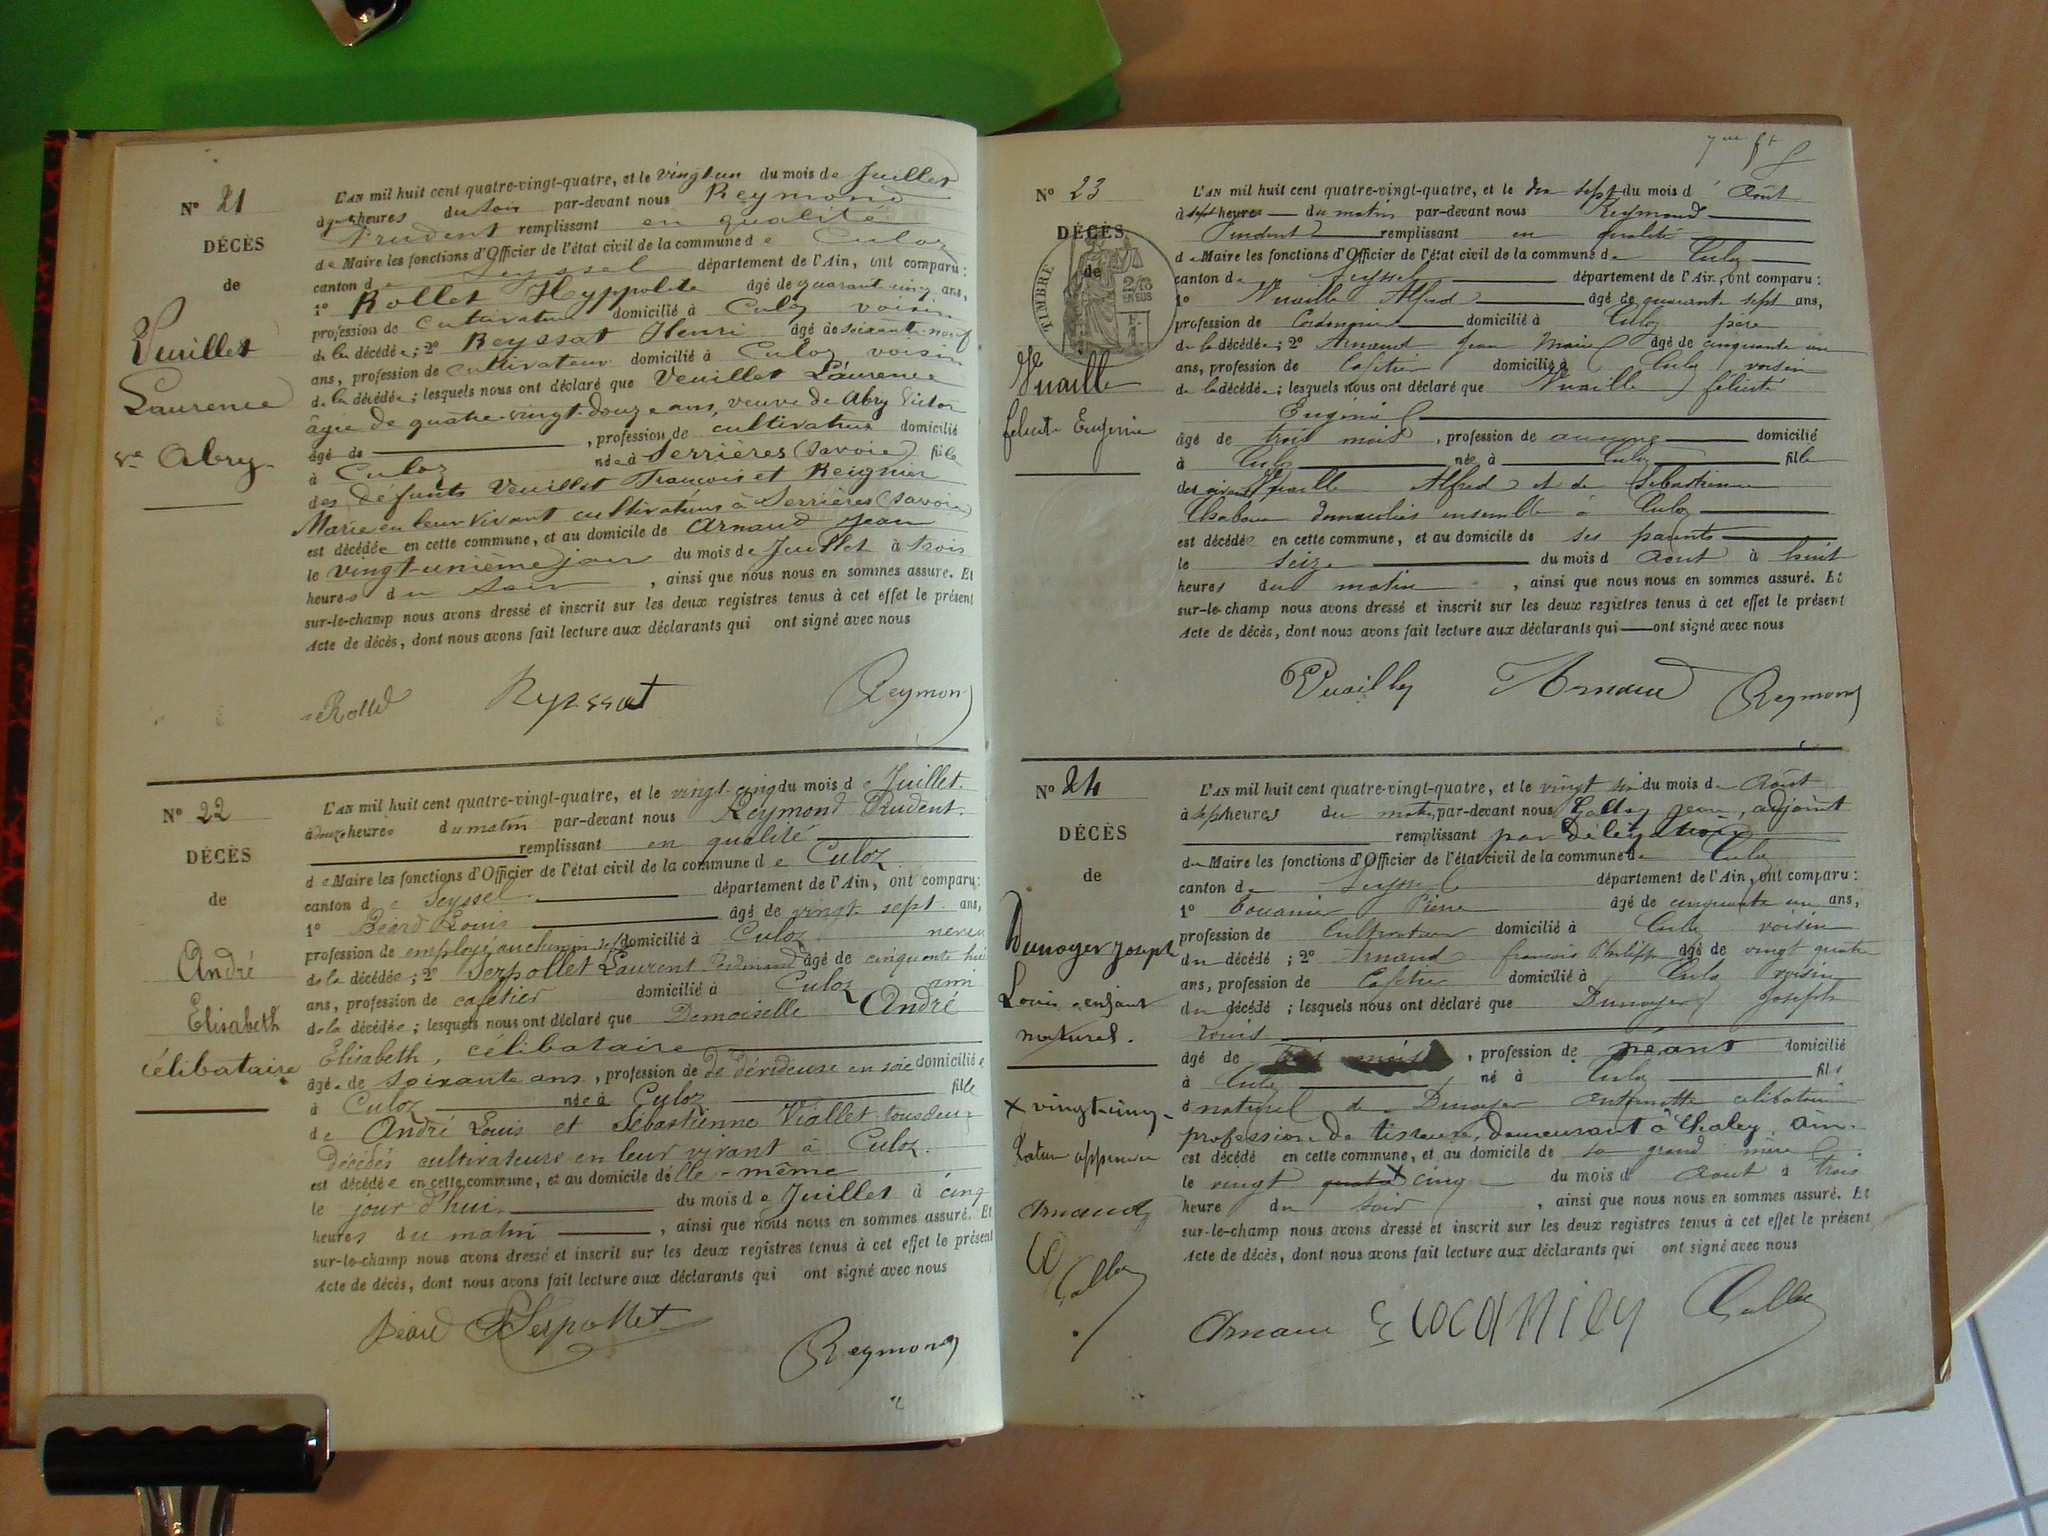 N° 21
DÉCÈS
de
Vuillet
Laurence
ve Abry
L'AN mil huit cent quatre-vingt-quatre, et le vingt-un du mois de Juillet
à heures du soir par-devant nous Reymond
Prudent remplissant en qualité
de Maire les fonctions d'Officier de l'état civil de la commune de Culoz
canton de Seyssel département de l'Ain, ont comparu :
1° Rollet Hyppolite âgé de quarante cinq ans,
profession de Cultivateur domicilié à Culoz voisin
de la décédée ; 2° Reyssat Henri âgé de soixante-neuf
ans, profession de Cultivateur domicilié à Culoz, voisin
de la décédée ; lesquels nous ont déclaré que Veuillet Laurence
âgée de quatre-vingt-douze ans, veuve de Abry Victor
âgé de , profession de cultivatrice domicilié
à Culoz née à Serrières (Savoie) fille
des défunts Veuillet François et Reignier
Marie en leur vivant cultivateurs à Serrières (Savoie)
est décédée en cette commune, et au domicile de Arnaud Jean
le vingt-unième jour du mois de Juillet à trois
heures du soir , ainsi que nous nous en sommes assuré. Et
sur-le-champ nous avons dressé et inscrit sur les deux registres tenus à cet effet le présent
Acte de décès, dont nous avons fait lecture aux déclarants qui ont signé avec nous
Rollet Reyssat Reymond
N° 22
DÉCÈS
de
André
Elisabeth
célibataire
L'AN mil huit cent quatre-vingt-quatre, et le vingt-cinq du mois de Juillet
à douze heures du matin par-devant nous Reymond Prudent
remplissant en qualité
de Maire les fonctions d'Officier de l'état civil de la commune de Culoz
canton de Seyssel département de l'Ain, ont comparu :
1° Béard Louis âgé de vingt-sept ans,
profession de employé au chemin de f domicilié à Culoz neveu
de la décédée ; 2° Serpollet Laurent Ferdinand âgé de cinquante huit
ans, profession de cafetier domicilié à Culoz ami
de la décédée ; lesquels nous ont déclaré que Demoiselle André
Elisabeth, célibataire
âgée de soixante ans, profession de de dévideuse en soie domiciliée
à Culoz née à Culoz fille
de André Louis et Sébastienne Viallet tous deux
décédés cultivateurs en leur vivant à Culoz.
est décédée en cette commune, et au domicile d'elle-même
le jour d'hui du mois de Juillet à cinq
heures du matin , ainsi que nous nous en sommes assuré. Et
sur-le-champ nous avons dressé et inscrit sur les deux registres tenus à cet effet le présent
Acte de décès, dont nous avons fait lecture aux déclarants qui ont signé avec nous
Béard Serpollet Reymond
7me ft
N° 23
DÉCÈS
de
TIMBRE
EN SUS
Vuaille
felicité Eugénie
L'AN mil huit cent quatre-vingt-quatre, et le dix sept du mois d' Août
à sept heures du matin par-devant nous Reymond
Prudent remplissant en qualité
de Maire les fonctions d'Officier de l'état civil de la commune de Culoz
canton de Seyssel département de l'Ain, ont comparu :
1° Vuaille Alfred âgé de quarante sept ans,
profession de Cordonnier domicilié à Culoz père
de la décédée ; 2° Arnaud Jean Marie âgé de cinquante un
ans, profession de Cafetier domicilié à Culoz voisin
de la décédée ; lesquels nous ont déclaré que Vuaille félicité
Eugénie
âgé de trois mois , profession de aucune domicilié
à Culoz née à Culoz fille
des vivants Vuaille Alfred et de Sébastienne
domiciliés ensemble à Culoz
est décédée en cette commune, et au domicile de ses parents
le seize du mois d' Août à huit
heures du matin , ainsi que nous nous en sommes assuré. Et
sur-le-champ nous avons dressé et inscrit sur les deux registres tenus à cet effet le présent
Acte de décès, dont nous avons fait lecture aux déclarants qui ont signé avec nous
Vuailly Arnaud Reymond
N° 24
DÉCÈS
de
Dunoyer Joseph
Louis enfant
naturel.
x vingt-cinq
Rature approuvée
Arnaud
Galley
L'AN mil huit cent quatre-vingt-quatre, et le vingt six du mois de Août
à sept heures du matin par-devant nous Galley Jean, adjoint
remplissant par délégation
du Maire les fonctions d'Officier de l'état civil de la commune de Culoz
canton de Seyssel département de l'Ain, ont comparu :
1° Pierre âgé de cinquante un ans,
profession de Cultivateur domicilié à Culoz voisin
du décédé ; 2° Arnaud françois Philippe âgé de vingt quatre
ans, profession de Cafetier domicilié à Culoz voisin
du décédé ; lesquels nous ont déclaré que Dunoyer Joseph
Louis
âgé de trois mois , profession de néant domicilié
à Culoz né à Culoz fils
naturel de Dunoyer Antoinette célibataire
profession de tisseuse, demeurant à Chaley Ain
est décédé en cette commune, et au domicile de sa grand mère
le vingt quatre x cinq du mois d' Août à trois
heure du soir , ainsi que nous nous en sommes assuré. Et
sur-le-champ nous avons dressé et inscrit sur les deux registres tenus à cet effet le présent
Acte de décès, dont nous avons fait lecture aux déclarants qui ont signé avec nous
Arnaud Galley